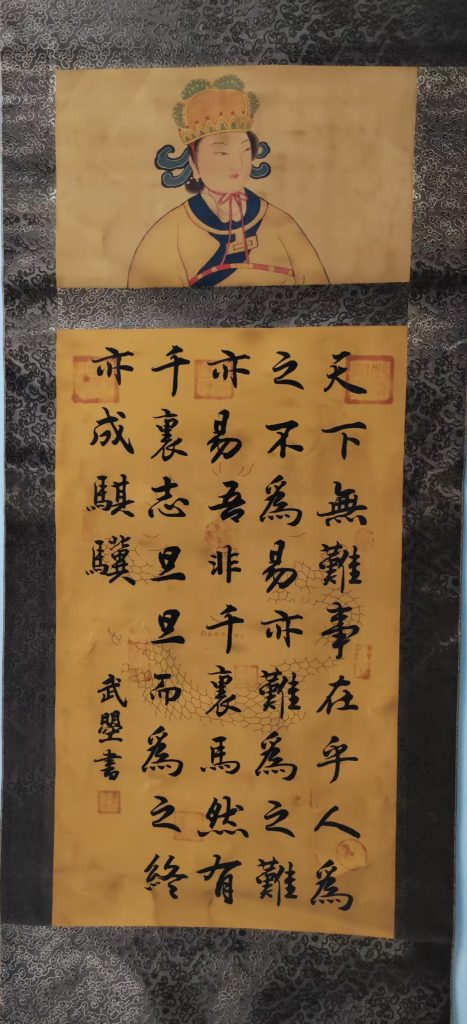 天下無難事在乎人爲
之不爲易亦難爲之難
亦易吾非千裏馬然有
千裏志旦旦而爲之終
亦成騏驥
武曌書